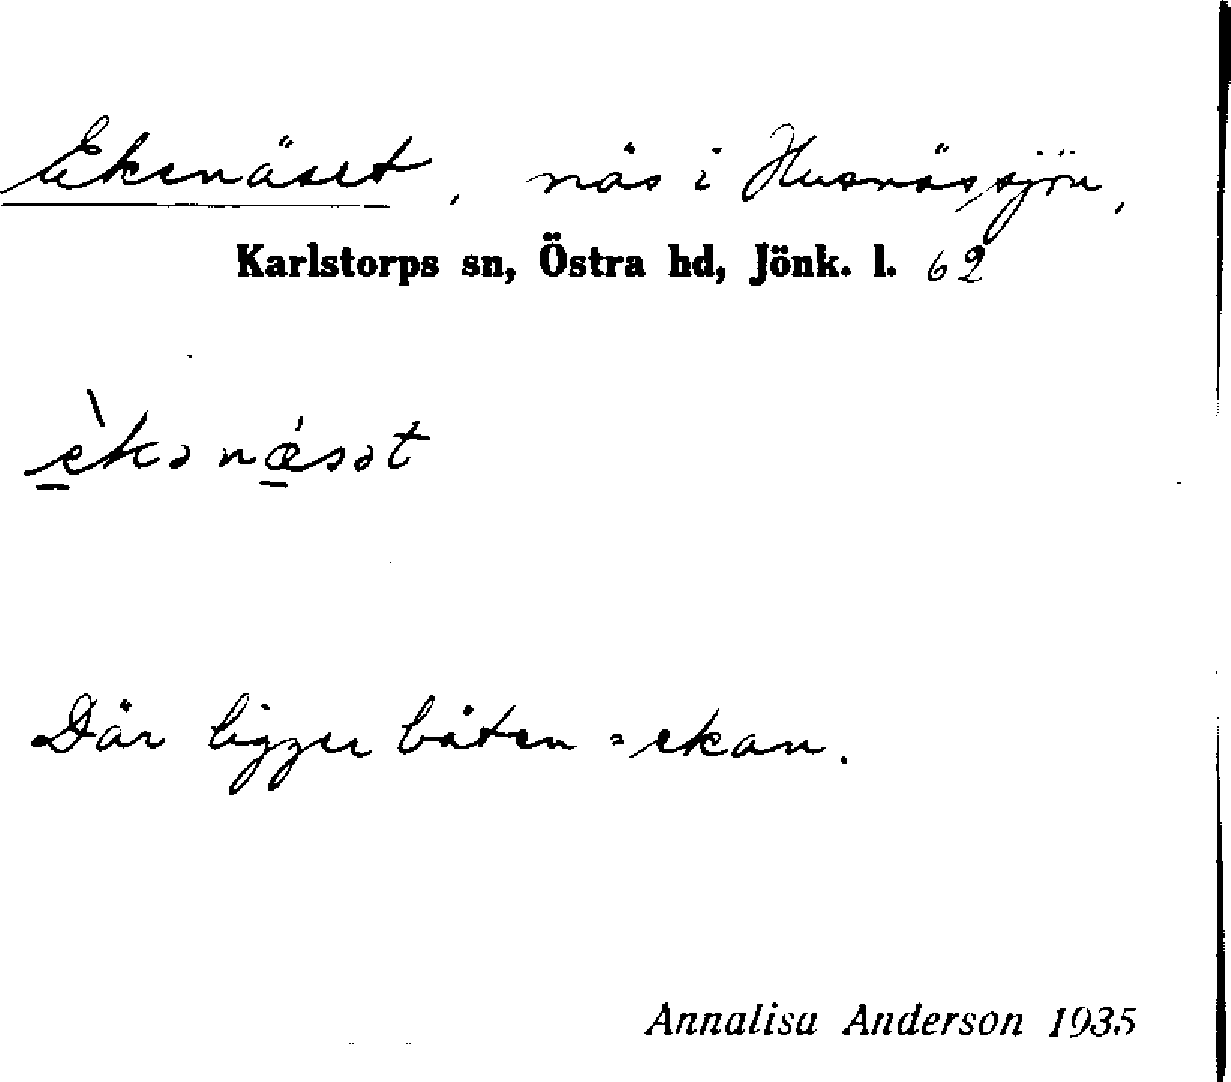 Ekenäset, näs i Husnässjön,
Karlstorps sn, Östra hd, Jönk. l. 62
è̱kə nǽ̱sət
Där ligger båten = ekan.
Annalisa Anderson 1935